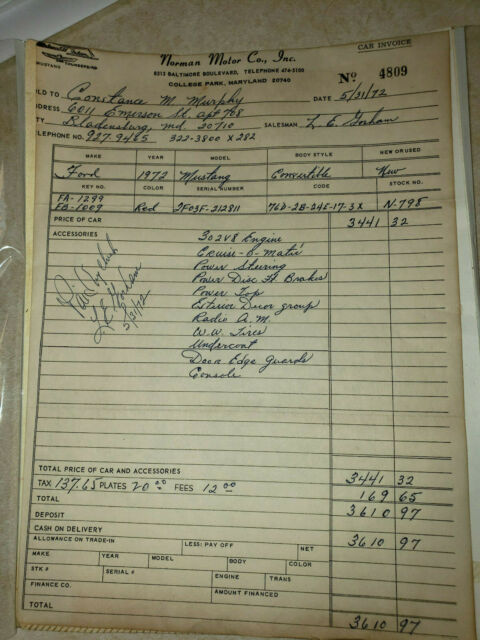 CAR INVOICE
Norman Motor Co., Inc.
8313 BALTIMORE BOULEVARD, TELEPHONE 474-5100
COLLEGE PARK, MARYLAND 20740
No. 4809
MUSTANG THUNDERBIRD
LD TO Constance M. Murphy DATE 5/31/72
DRESS 6011 Emerson St. apt 708
TY Bladensburg, Md. 20710 SALESMAN L. E. Gorham
ELEPHONE NO. 927-9465 322-3800 x 282
MAKE YEAR MODEL BODY STYLE NEW OR USED
Ford 1972 Mustang Convertible New
KEY NO. COLOR SERIAL NUMBER CODE STOCK NO.
FA-1299
FB-1009 Red 2F03F-212811 76D-2B-24E-17-3X N-798
PRICE OF CAR 3441 32
ACCESSORIES 302 V8 Engine
Cruise-O-Matic
Power Steering
Power Disc Ft Brakes
Power Top
Exterior Decor group
Radio A.M.
W.W. Tires
Undercoat
Door Edge guards
Console
Paid
L E Gorham
5/31/72
TOTAL PRICE OF CAR AND ACCESSORIES 3441 32
TAX 137.65 PLATES 20 00 FEES 12 00 169 65
TOTAL 3610 97
DEPOSIT
CASH ON DELIVERY 3610 97
ALLOWANCE ON TRADE-IN LESS: PAY OFF NET
MAKE YEAR MODEL BODY COLOR
STK # SERIAL # ENGINE TRANS
FINANCE CO. AMOUNT FINANCED
TOTAL 3610 97